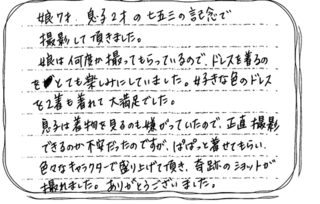 娘7才 息子2才の七五三の記念で
撮影して頂きました。
娘は何度か撮ってもらっているので、ドレスを着るの
をとても楽しみにしていました。好きな色のドレス
を2着も着れて大満足でした。
息子は着物を見るのも嫌がっていたので、正直撮影
できるのか不安だったのですが、ぱぱっと着せてもらい、
色々なキャラクターで盛り上げて頂き、奇跡のショットが
撮れました。ありがとうございました。